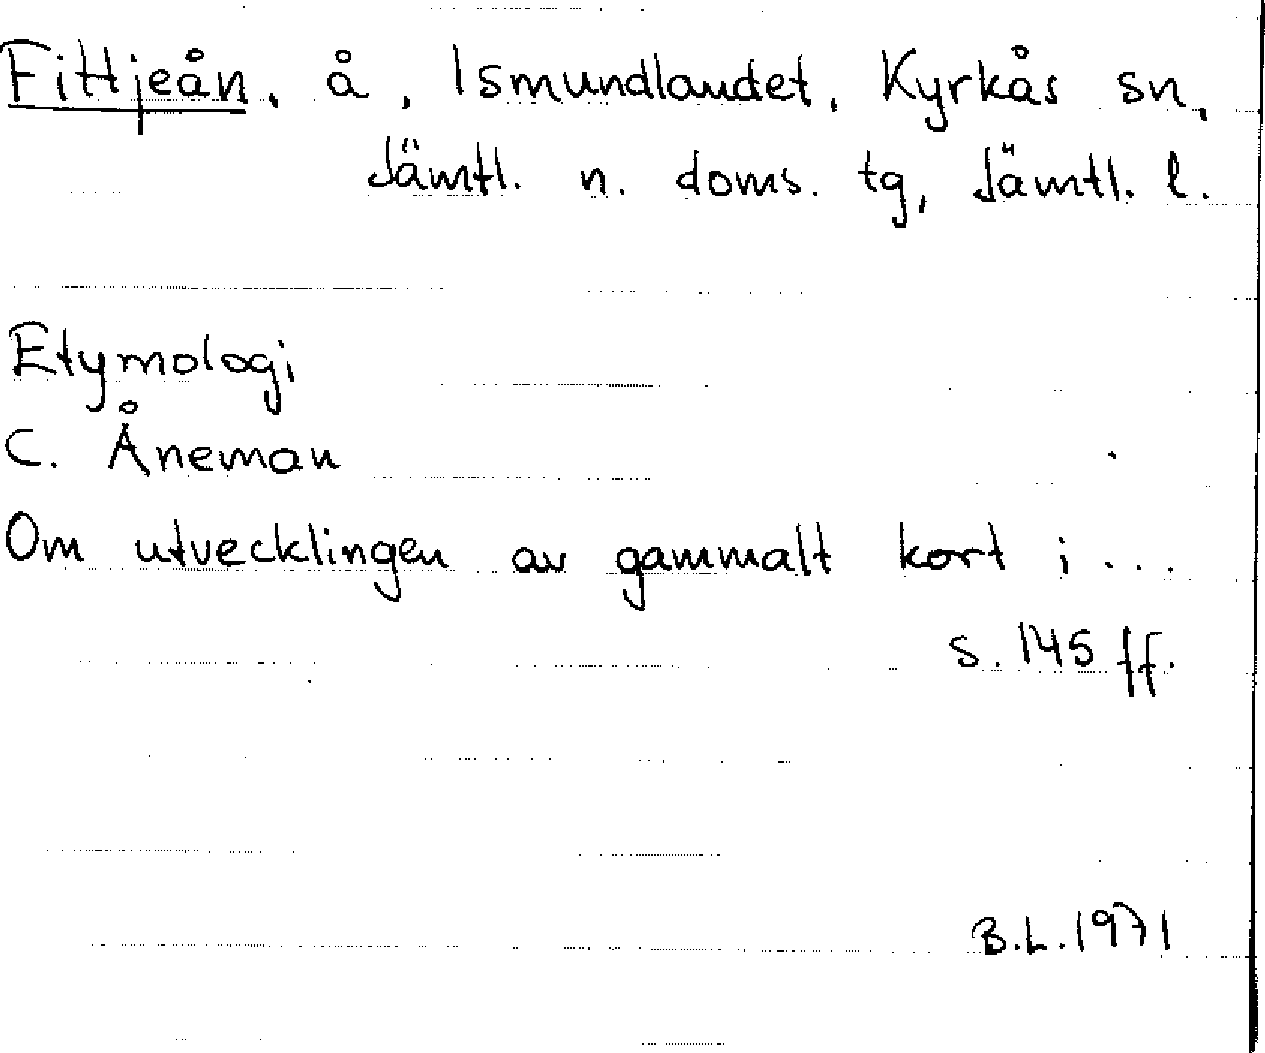 Fittjeån, å, Ismundlandet, Kyrkås sn,
Jämtl. n. doms. tg, Jämtl. l.
Etymologi
C. Åneman
Om utvecklingen av gammalt kort i...
s. 145 ff.
B.L. 1971